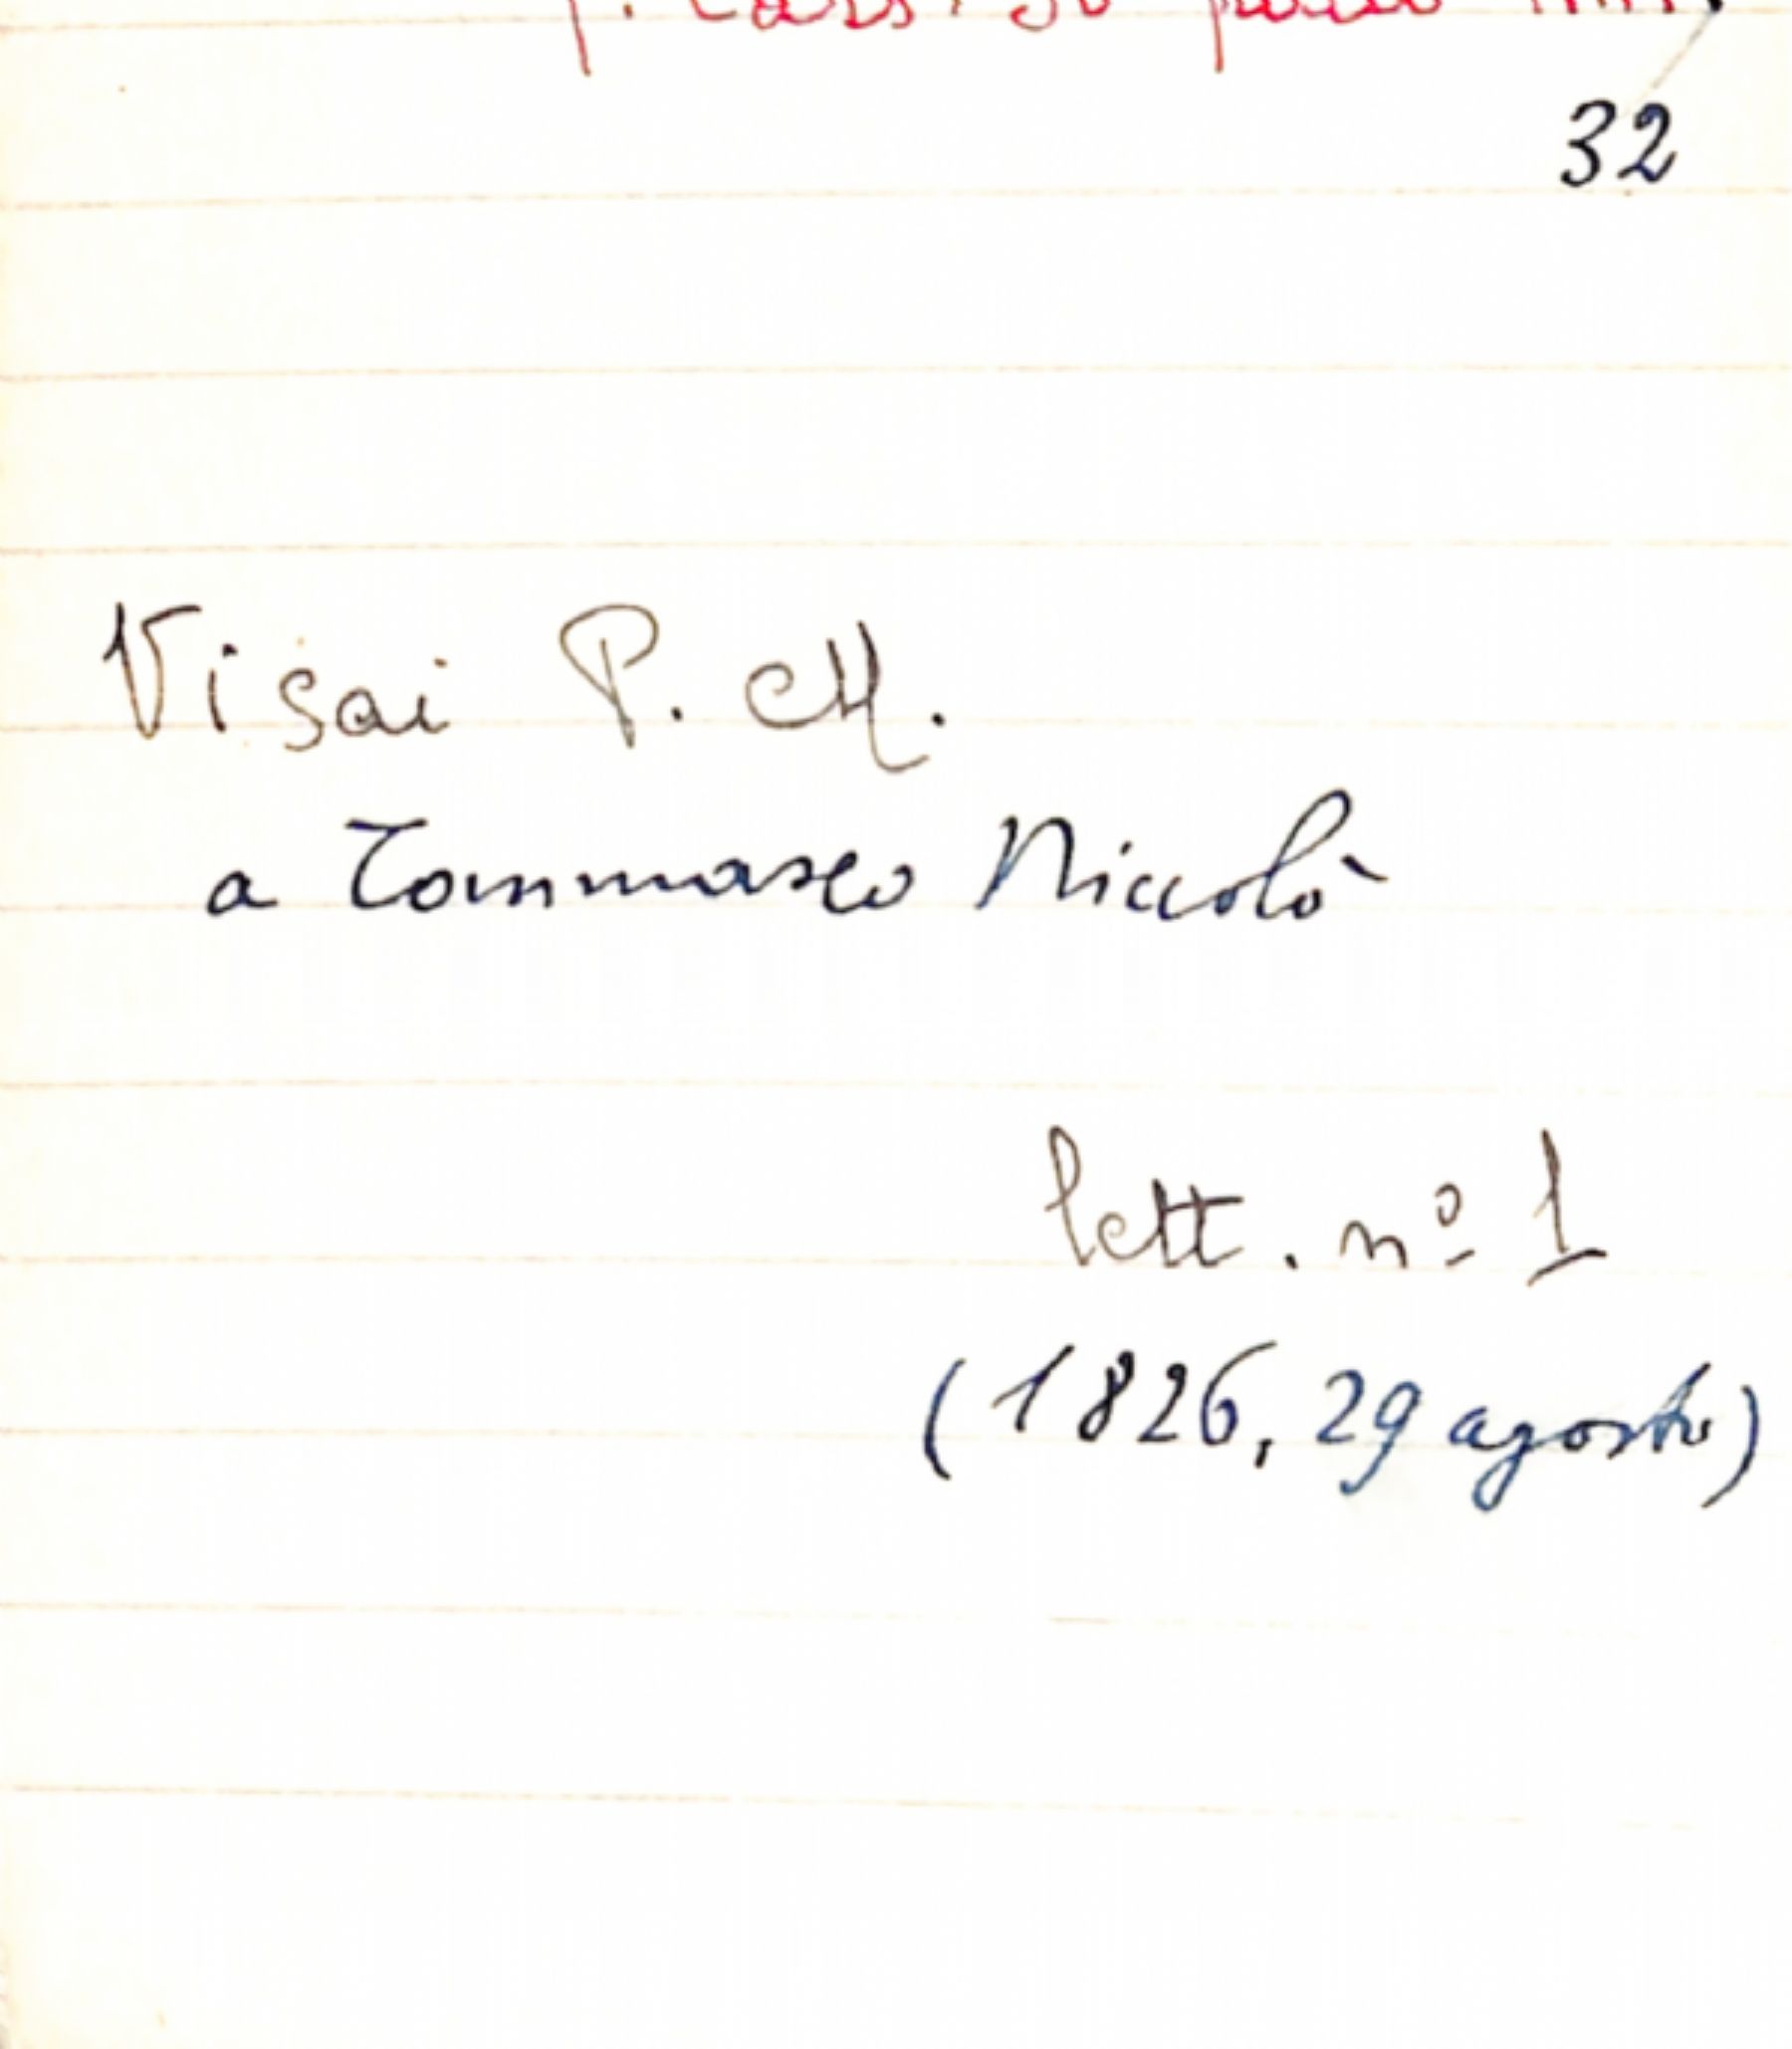 32
Visai P. M.
a Tommaseo Niccolò
lett. nº 1
(1826, 29 agosto)